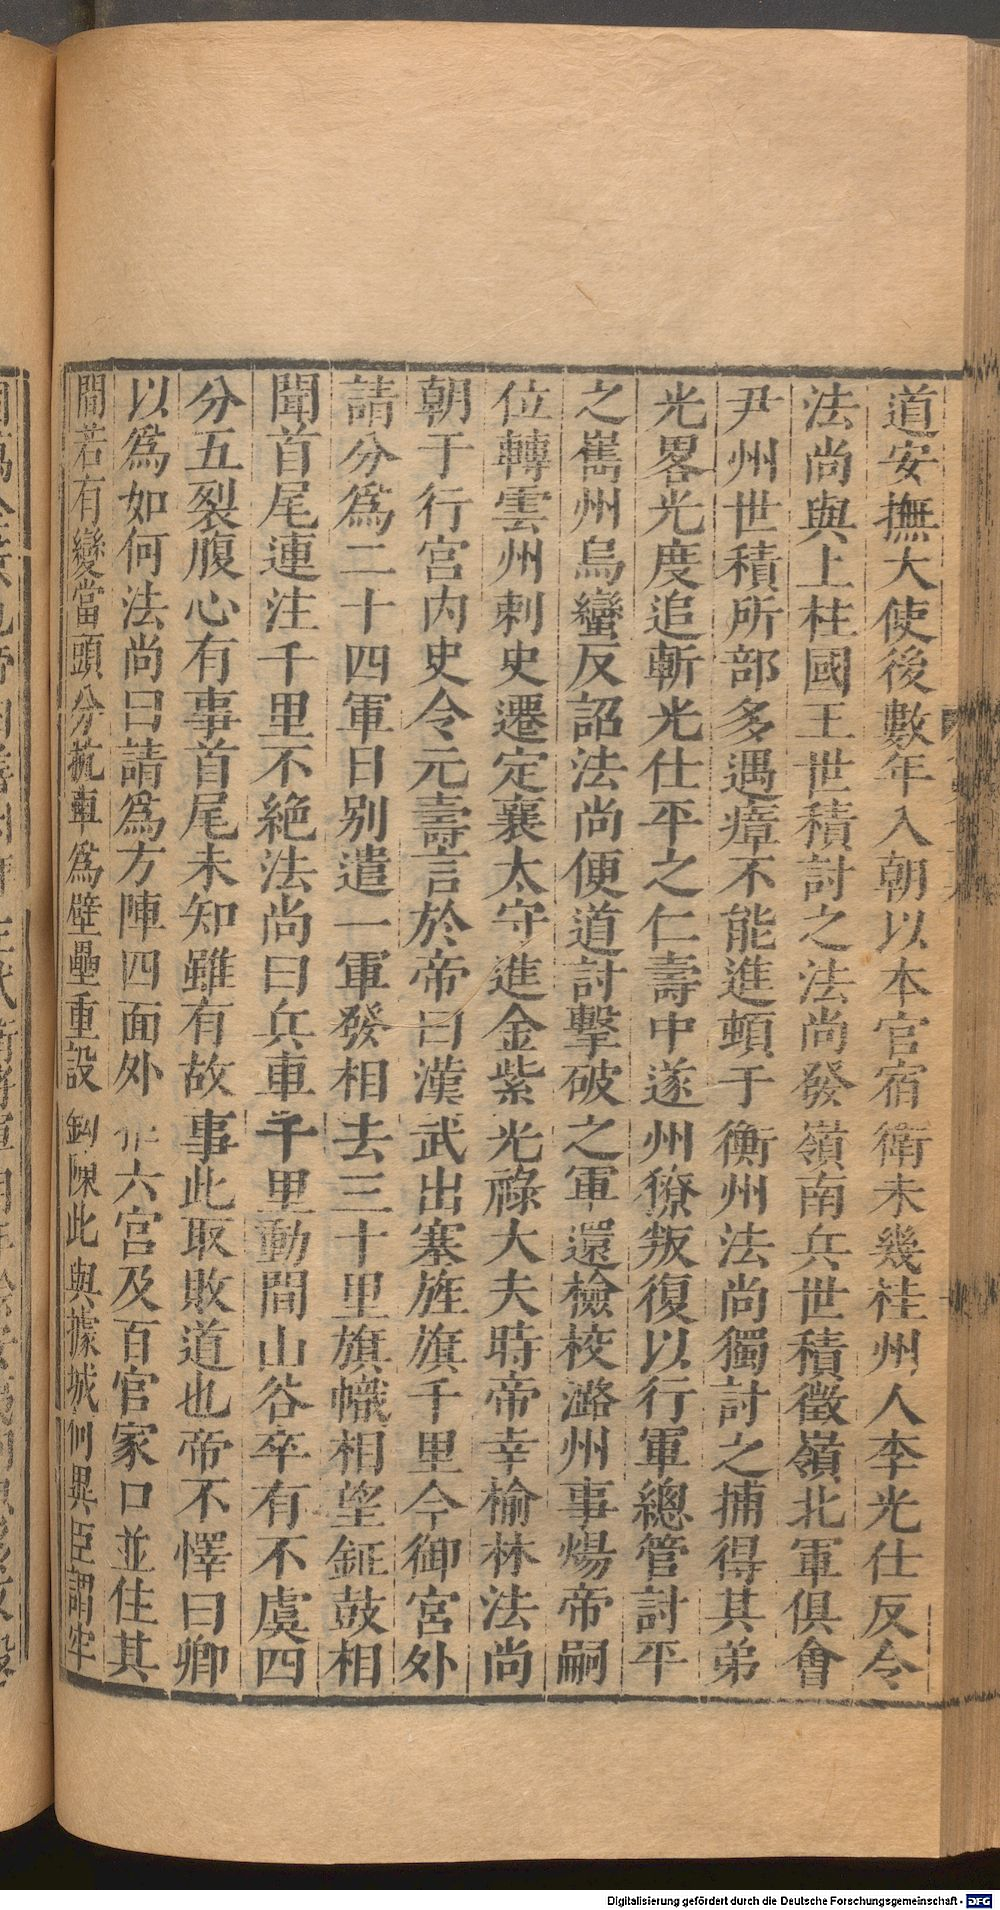 道安撫大使後數年入朝以本官宿衛未幾桂州人李光仕反令
法尚與上柱國王世積討之法尚發嶺南兵世積徵嶺北軍俱會
尹州世積所部多遇瘴不能進頓于衡州法尚獨討之捕得其弟
光畧光度追斬光仕平之仁壽中遂州獠叛復以行軍總管討平
之嶲州烏蠻反詔法尚便道討擊破之軍還檢校潞州事煬帝嗣
位轉雲州刺史遷定襄太守進金紫光祿大夫時帝幸榆林法尚
朝于行宮內史令元壽言於帝曰漢武出塞旌旗千里今御宮外
請分爲二十四軍日别遣一軍發相去三十里旗幟相望鉦鼓相
聞首尾連注千里不絶法尚曰兵車千里動間山谷卒有不虞四
分五裂腹心有事首尾未知雖有故事此取敗道也帝不懌曰卿
以爲如何法尚曰請爲方陣四面外六宮及百官家口並住其
間若有變當頭分抗車爲壁壘重設鈎陳此與據城何異臣謂牢
Digitalisierung gefördert durch die Deutsche Forschungsgemeinschaft - DFG